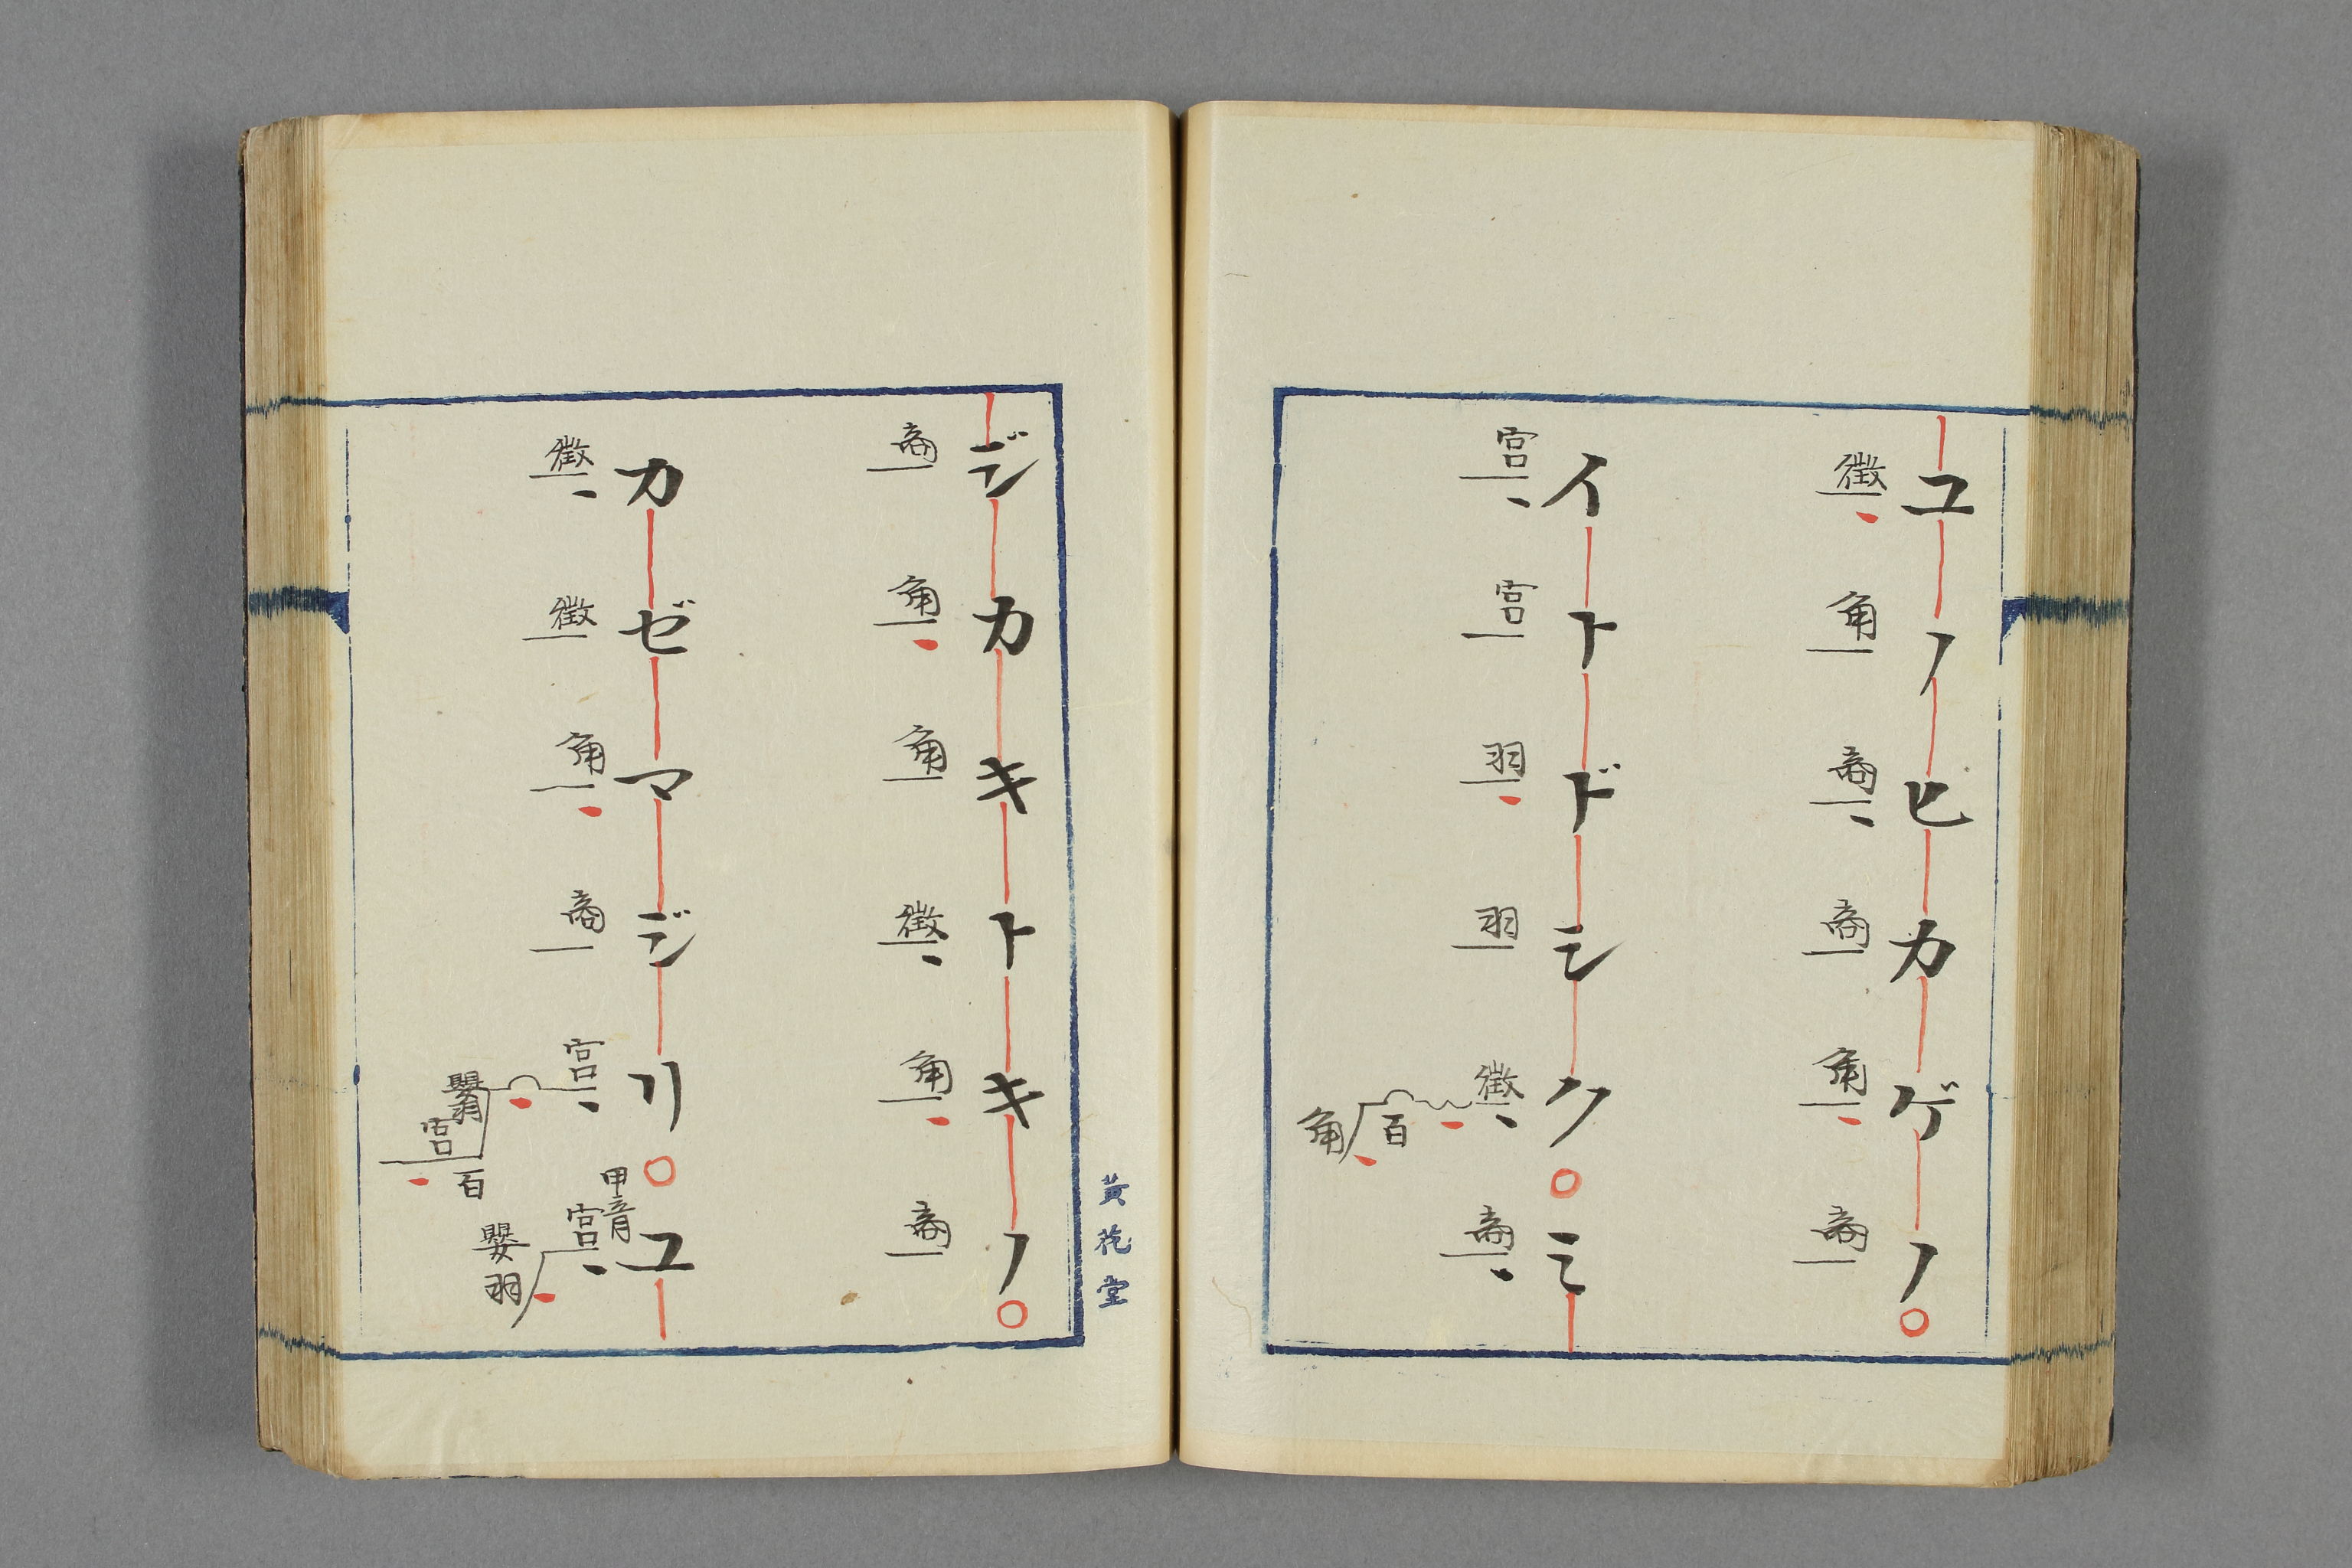 ユノヒカゲノ
徴角商商角商
イトドシクミ
宮宮羽羽徴百角商
黄花堂
ジカキトキノ
商角角徴角商
カゼマジリユ
徴徴角商宮嬰羽宮百甲音宮嬰羽